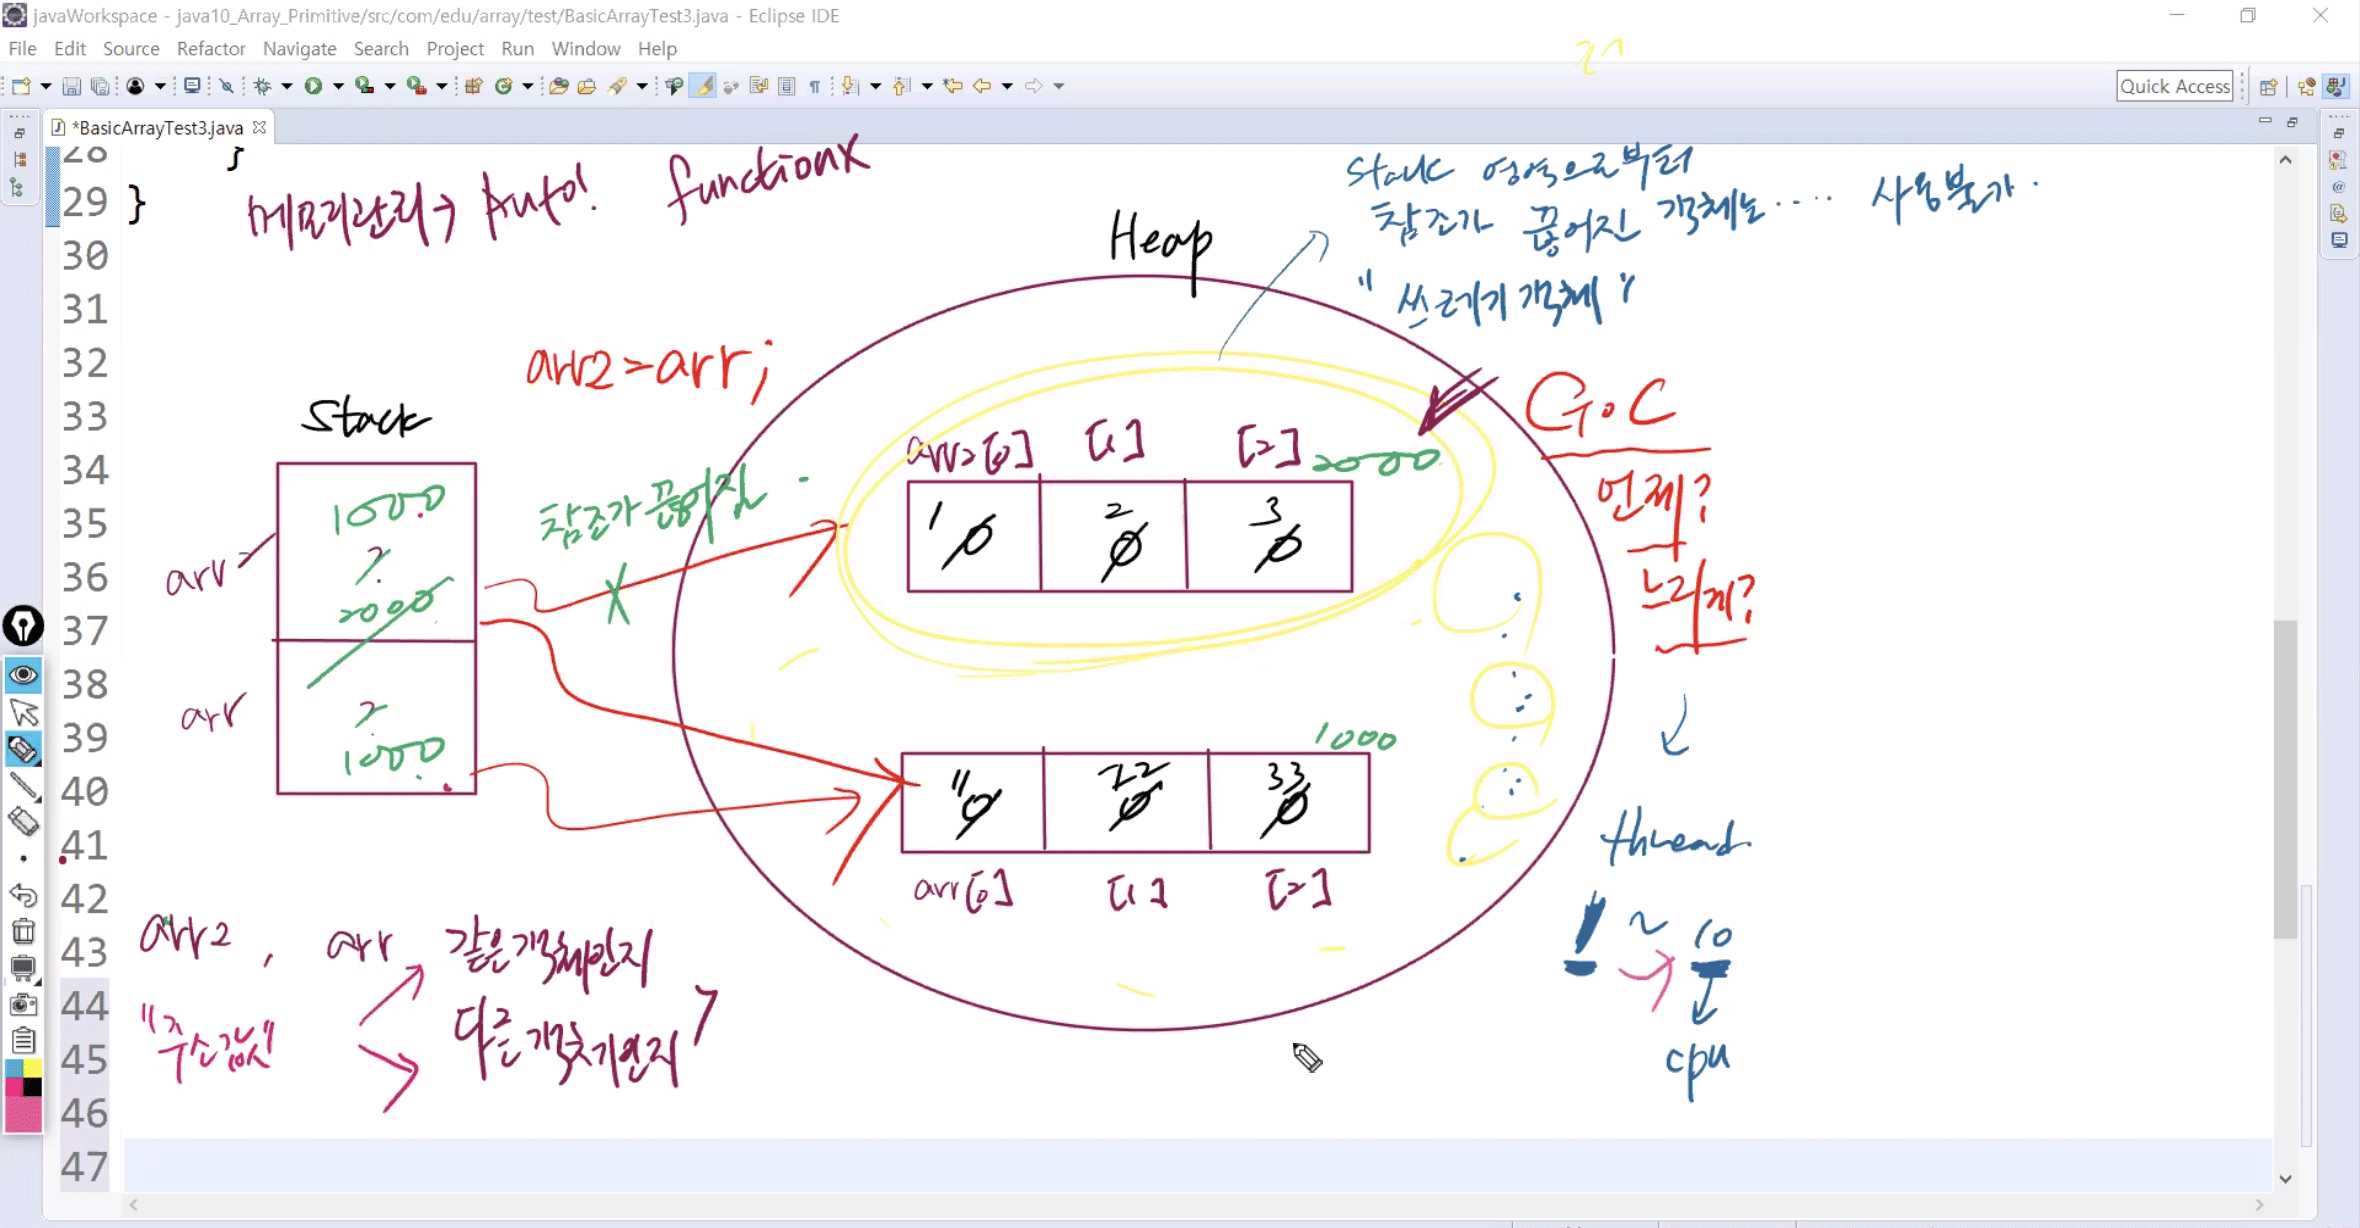 javaWorkspace - java10_Array_Primitive/src/com/edu/array/test/BasicArrayTest3.java - Eclipse IDE
File Edit Source Refactor Navigate Search Project Run Window Help
Quick Access
*BasicArrayTest3.java
28 }
29 }
30
31
32
33
34
35
36
37
38
39
40
41
42
43
44
45
46
47
메모리관리→ Auto! functionX
Stack 영역으로부터
참조가 끊어진 객체는.... 사용불가.
"쓰레기 객체"
Heap
arr2=arr;
Stack
G.C
언제?
느리게?
arr2[0] [1] [2] 2000
1 0 2 0 3 0
참조가 끊어짐.
X
arr
1000
?
2000
arr
?
1000
1000
11 0 22 0 33 0
arr[0] [1] [2]
thread.
1 ~ 10
cpu
arr2, arr 같은객체인지
다른 객체인지
"주소값"